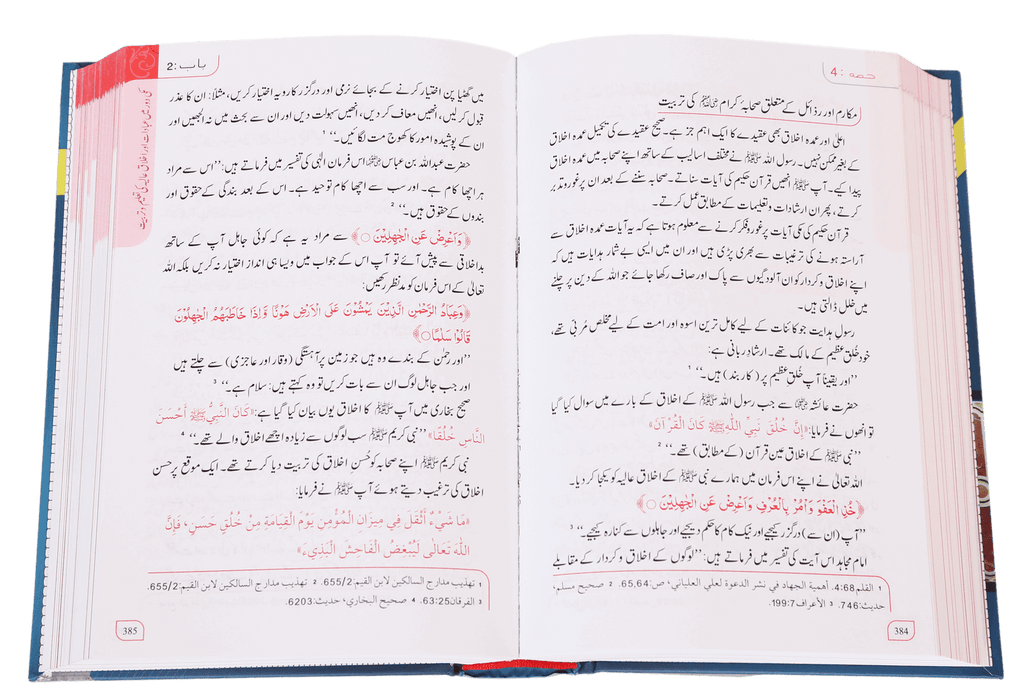 حصہ : 4
مکارم اور رذائل کے متعلق صحابہ کرام رضی اللہ عنہم کی تربیت
اعلیٰ اور عمدہ اخلاق بھی عقیدے کا ایک اہم جز ہے۔ صحیح عقیدے کی تکمیل عمدہ اخلاق
کے بغیر ممکن نہیں۔ رسول اللہ ﷺ نے مختلف اسالیب کے ساتھ اپنے صحابہ میں عمدہ اخلاق
پیدا کیے۔ آپ ﷺ انھیں قرآن حکیم کی آیات سناتے۔ صحابہ سننے کے بعد ان پر غور و تدبر
کرتے، پھر ان ارشادات و تعلیمات کے مطابق عمل کرتے۔
قرآن حکیم کی مکی آیات پر غور و فکر کرنے سے معلوم ہوتا ہے کہ یہ آیات عمدہ اخلاق سے
آراستہ ہونے کی ترغیبات سے بھری پڑی ہیں اور ان میں ایسی بے شمار ہدایات ہیں کہ
اپنے اخلاق و کردار کو ان آلودگیوں سے پاک اور صاف رکھا جائے جو اللہ کے دین پر چلنے
میں خلل ڈالتی ہیں۔
رسولِ ہدایت جو کائنات کے لیے کامل ترین اسوہ اور امت کے لیے مخلص مُربی تھے،
خود خُلقِ عظیم کے مالک تھے۔ ارشاد ربانی ہے:
’’اور یقیناً آپ خُلقِ عظیم پر (کاربند) ہیں۔‘‘ 1
حضرت عائشہ رضی اللہ عنہا سے جب رسول اللہ ﷺ کے اخلاق کے بارے میں سوال کیا گیا
تو انھوں نے فرمایا: «إِنَّ خُلُقَ نَبِيِّ اللهِ ﷺ كَانَ الْقُرْآنَ»
’’نبی ﷺ کے اخلاق عین قرآن (کے مطابق) تھے۔‘‘ 2
اللہ تعالیٰ نے اپنے اس فرمان میں ہمارے نبی ﷺ کے اخلاق عالیہ کو یکجا کر دیا۔
﴿خُذِ الْعَفْوَ وَأْمُرْ بِالْعُرْفِ وَأَعْرِضْ عَنِ الْجٰهِلِيْنَ ○﴾
’’آپ (ان سے) درگزر کیجیے اور نیک کام کا حکم دیجیے اور جاہلوں سے کنارہ کیجیے۔‘‘ 3
امام مجاہد اس آیت کی تفسیر میں فرماتے ہیں: ’’لوگوں کے اخلاق و کردار کے مقابلے
1 القلم 4:68. أهمية الجهاد في نشر الدعوة لعلي العلياني، ص:65,64. 2 صحيح مسلم،
حديث:746. 3 الأعراف 199:7.
384
باب :2
مکی دور میں عبادات اور اخلاقِ عالیہ کی تعلیم و تربیت
میں گھٹیا پن اختیار کرنے کے بجائے نرمی اور درگزر کا رویہ اختیار کریں، مثلاً: ان کا عذر
قبول کر لیں، انھیں معاف کر دیں، انھیں سہولت دیں اور ان سے بحث میں نہ الجھیں اور
ان کے پوشیدہ امور کا کھوج مت لگائیں۔‘‘ 1
حضرت عبداللہ بن عباس رضی اللہ عنہما اس فرمان الٰہی کی تفسیر میں فرماتے ہیں: ’’اس سے مراد
ہر اچھا کام ہے۔ اور سب سے اچھا کام توحید ہے۔ اس کے بعد بندگی کے حقوق اور
بندوں کے حقوق ہیں۔‘‘ 2
﴿وَاَعْرِضْ عَنِ الْجٰهِلِيْنَ ○﴾ سے مراد یہ ہے کہ کوئی جاہل آپ کے ساتھ
بداخلاقی سے پیش آئے تو آپ اس کے جواب میں ویسا ہی انداز اختیار نہ کریں بلکہ اللہ
تعالیٰ کے اس فرمان کو مدنظر رکھیں:
﴿وَعِبَادُ الرَّحْمٰنِ الَّذِيْنَ يَمْشُوْنَ عَلَى الْاَرْضِ هَوْنًا وَّاِذَا خَاطَبَهُمُ الْجٰهِلُوْنَ
قَالُوْا سَلٰمًا ○﴾
’’اور رحمٰن کے بندے وہ ہیں جو زمین پر آہستگی (وقار اور عاجزی) سے چلتے ہیں
اور جب جاہل لوگ ان سے بات کریں تو وہ کہتے ہیں: سلام ہے۔‘‘ 3
صحیح بخاری میں آپ ﷺ کا اخلاق یوں بیان کیا گیا ہے: «كَانَ النَّبِيُّ ﷺ أَحْسَنَ
النَّاسِ خُلُقًا» ’’نبی کریم ﷺ سب لوگوں سے زیادہ اچھے اخلاق والے تھے۔‘‘ 4
نبی کریم ﷺ اپنے صحابہ کو حُسنِ اخلاق کی تربیت دیا کرتے تھے۔ ایک موقع پر حسن
اخلاق کی ترغیب دیتے ہوئے آپ ﷺ نے فرمایا:
«مَا شَيْءٌ أَثْقَلُ فِي مِيزَانِ الْمُؤْمِنِ يَوْمَ الْقِيَامَةِ مِنْ خُلُقٍ حَسَنٍ، فَإِنَّ
اللهَ تَعَالَى لَيُبْغِضُ الْفَاحِشَ الْبَذِيءَ»
1 تهذيب مدارج السالكين لابن القيم:655/2. 2 تهذيب مدارج السالكين لابن القيم:655/2.
3 الفرقان 63:25. 4 صحيح البخاري، حديث:6203.
385